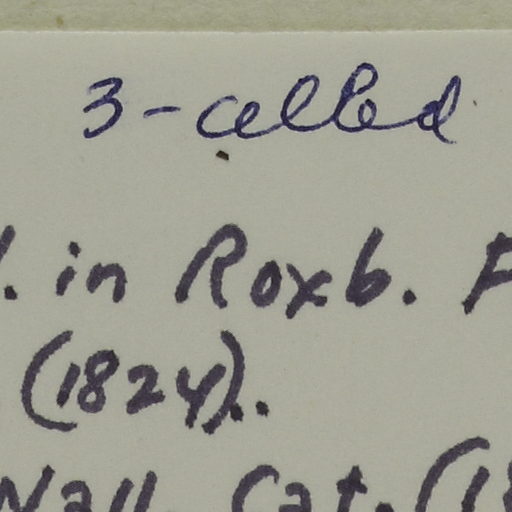 3-celled
. in Roxb. F
(1824)..
Wall. Cat. (18